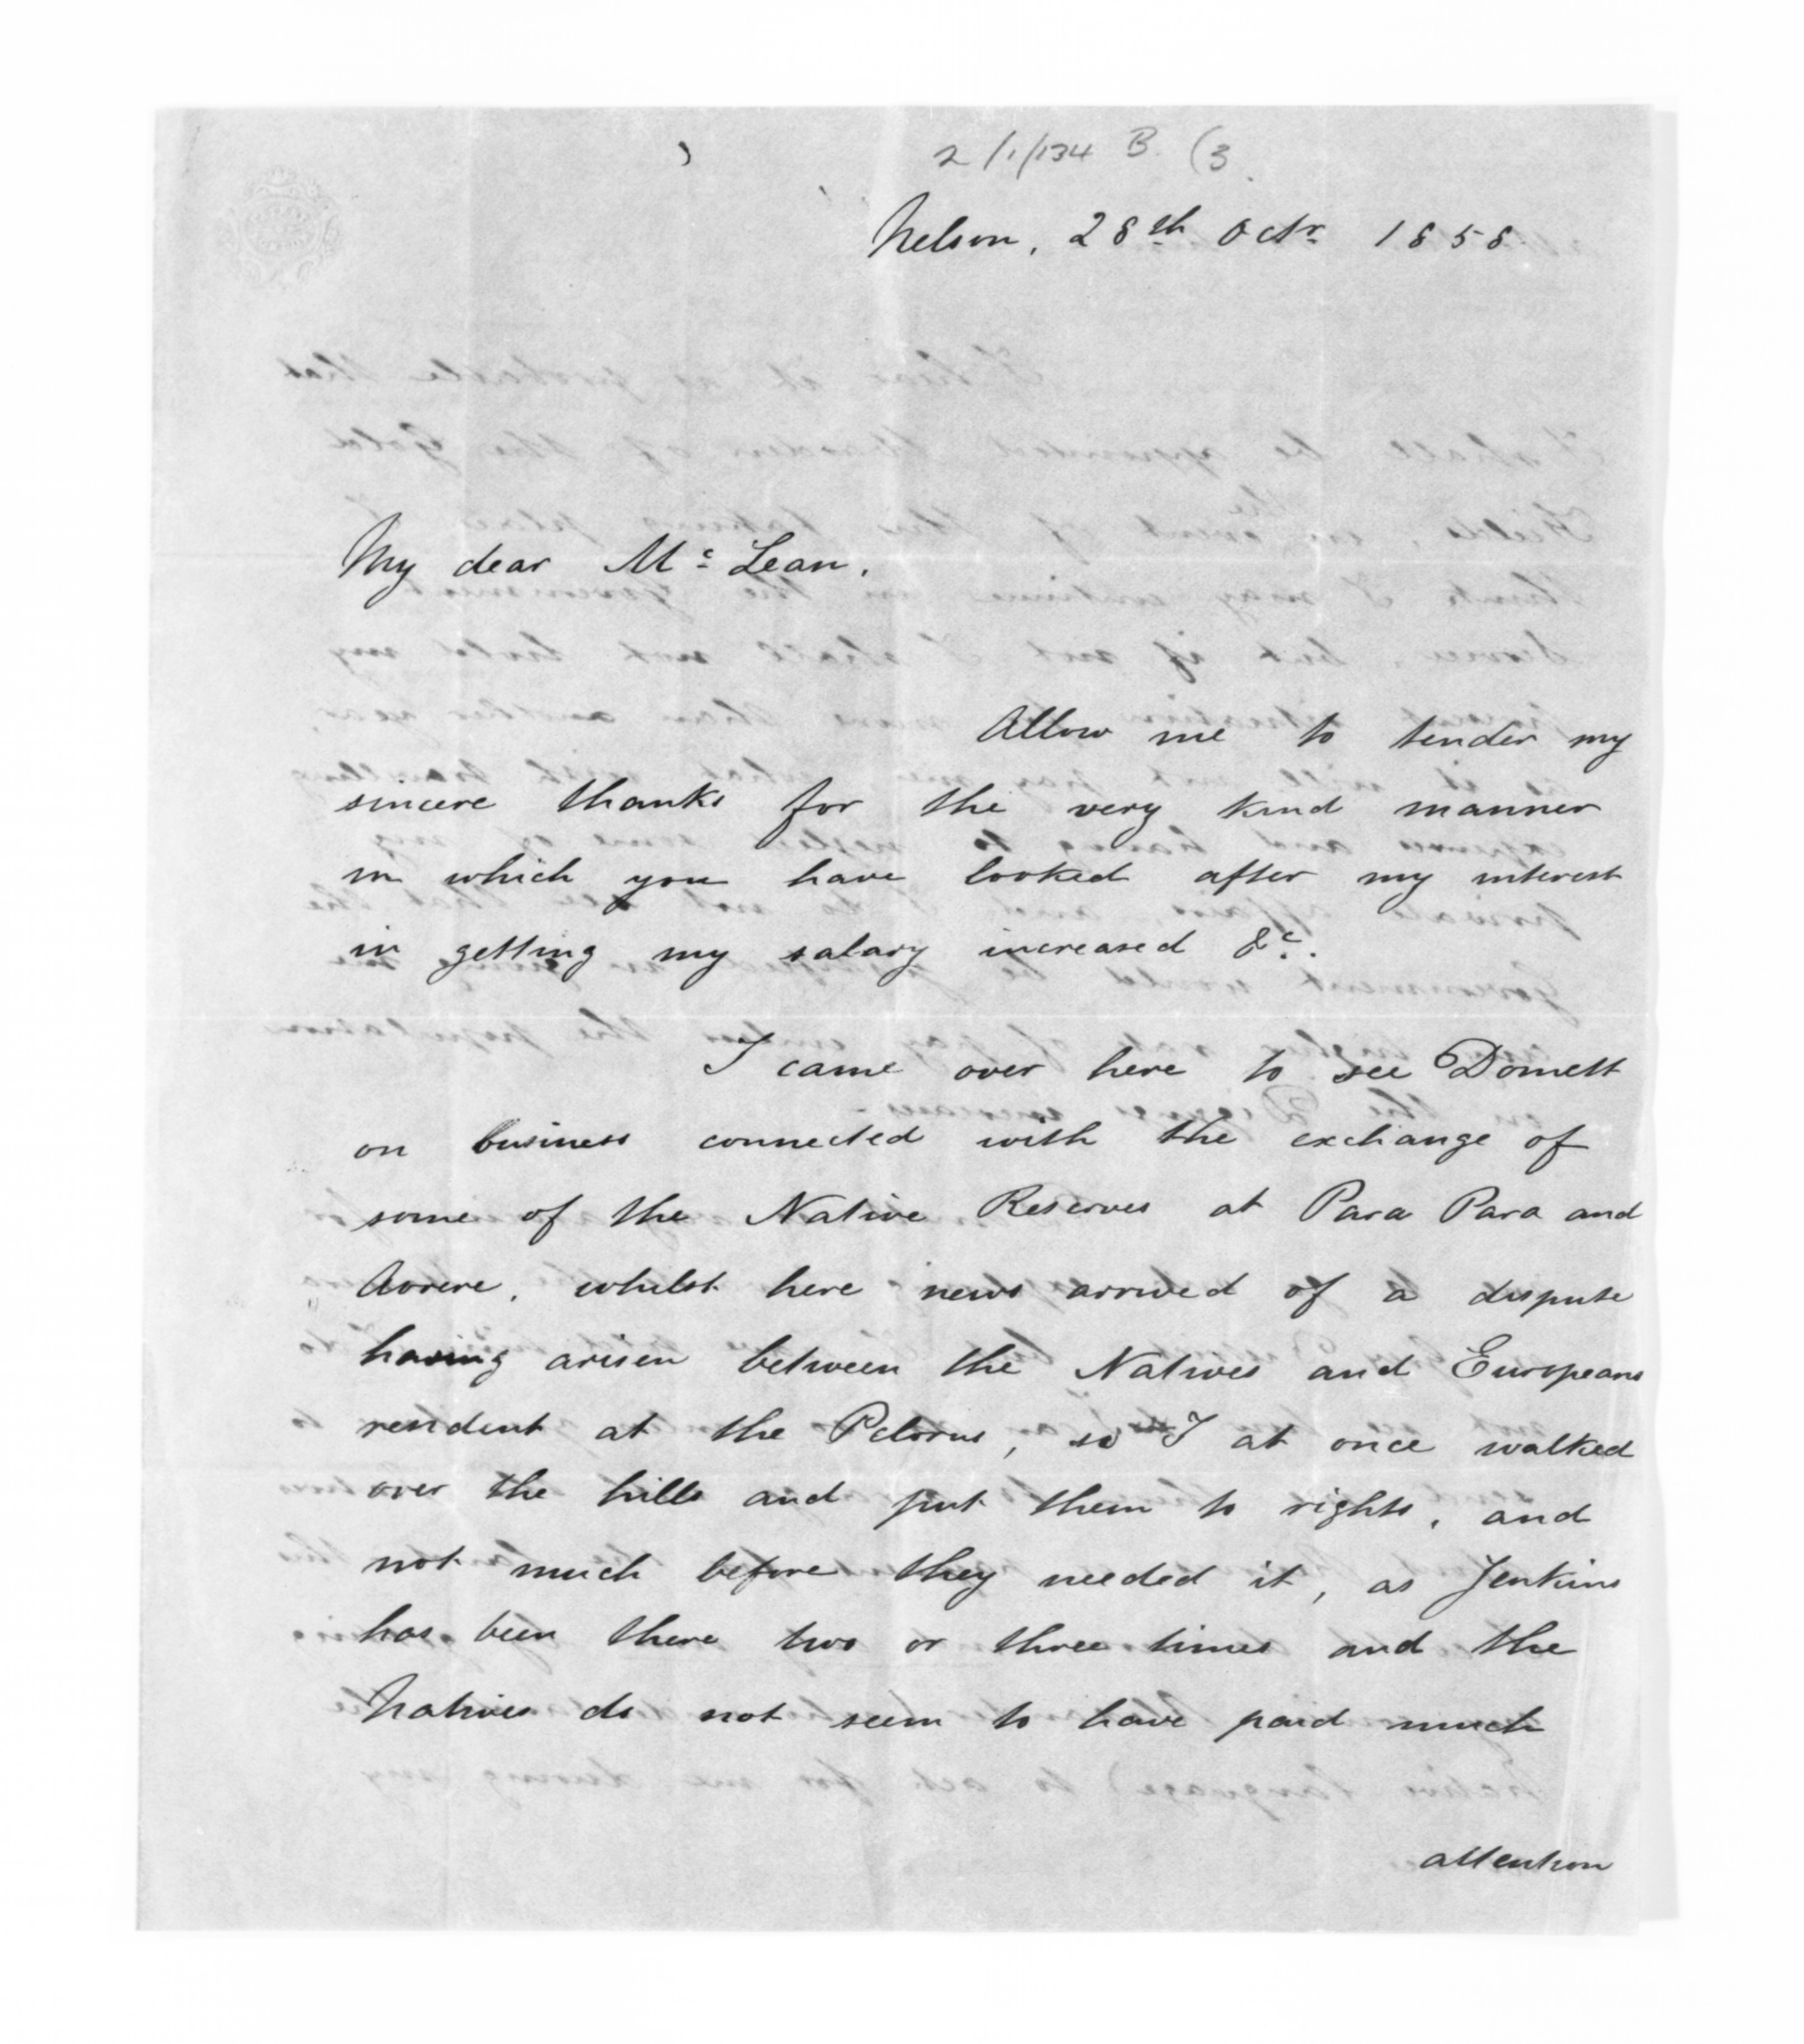 2/1/134 B. (3.
Nelson, 28th Octr 1858.
My dear McLean,
Allow me to tender my
sincere thanks for the very kind manner
in which you have looked after my interest
in getting my salary increased &c.
I came over here to see Domett
on business connected with the exchange of
some of the Native Reserves at Para Para and
Aorere, whilst here news arrived of a dispute
having arisen between the Natives and Europeans
resident at the Pelorus, so I at once walked
over the hills and put them to rights, and
not much before they needed it, as Jenkins
has been there two or three times and the
Natives do not seem to have paid much
attention